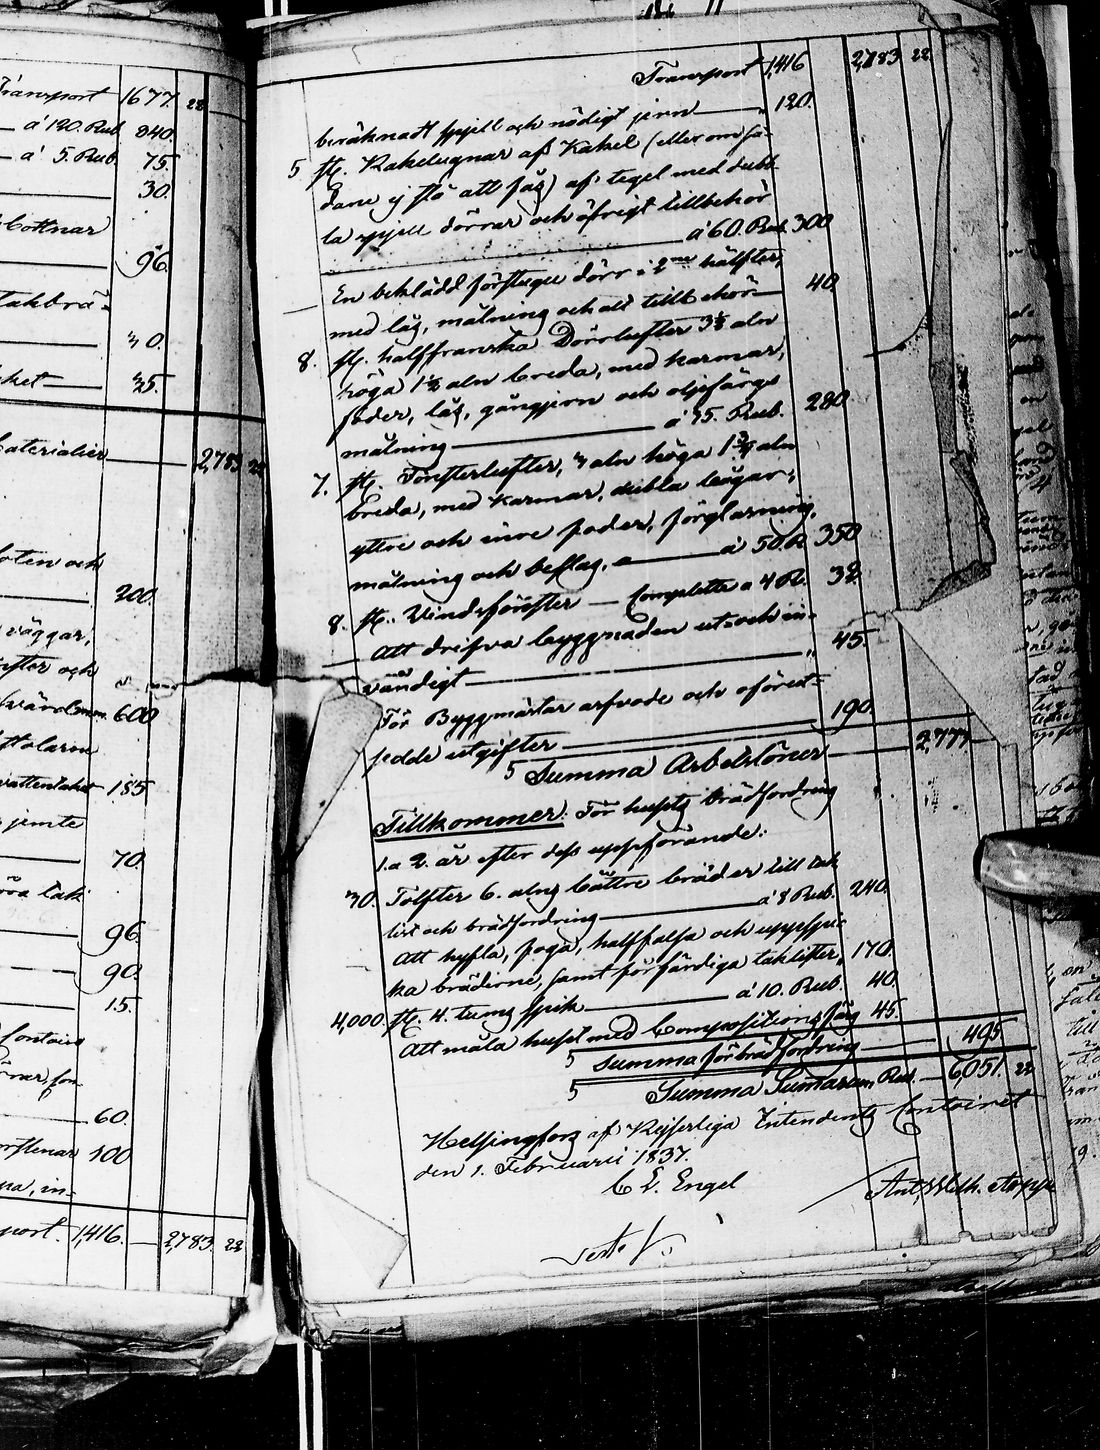 Transport 1677. 22
á 120. Rub. 840.
á 5. Rub. 75.
30.
bottnar
96.
takbrä-
30.
ket 35.
Materialier 2,783 22
oten och
200.
väggar,
och
600
185
jemte
70.
tak
96.
90.
15.
60.
100
na, in-
port. 1,416. 2,783. 22
Transport 1,416 2,783 22
beräknadt spjell och nödigt jern „ 120.
5 st. Kakelugnar af Kakel (eller om så-
dane ej stå att få) af tegel med dubb-
la spjell dörrar och öfrigt tillbehör
á 60. Rub. 300
En beklädd förstugu dörr i 2ne hälfter,
med lås, målning och all tillbehör 40.
8. st. halffranska Dörrlufter 3½ aln
höga 1½ aln breda, med karmar,
foder, lås, gångjern och oljefärgs
målning á 35. Rub. 280
7. st. Fönsterlufter, 3 aln höga 1¾ aln
breda, med karmar, dubla bågar,
yttre och inre foder, förglasning,
målning och beslag, á 50. R. 350
8. st. Vindsfönster — Complette a 4 R. 32.
Att drifva byggnaden ut- och in-
vändigt „ 45.
För Byggmästar arfvode och oförut-
sedde utgifter 190.
Summa Arbetslöner 2,773
Tillkommer: För husets brädfordring
1. a 2. år efter dess uppförande:
30. Tolfter 6. alns bättre bräder till tak
list och brädfordring á 8 Rub. 240.
Att hyfla, foga, halffalsa och uppspi-
ka bräderne, samt förfärdiga taklister, 170.
4,000. st. 4. tums spik á 10. Rub. 40.
Att måla huset med Compositions färg 45.
Summa för brädfordring 495
Summa Sumarum, Rub. 6,051. 22
Helsingfors af Kejserliga Intendents Contoiret
den 1. Februarii 1837.
C. L. Engel
Ant. Wilh. Arppe